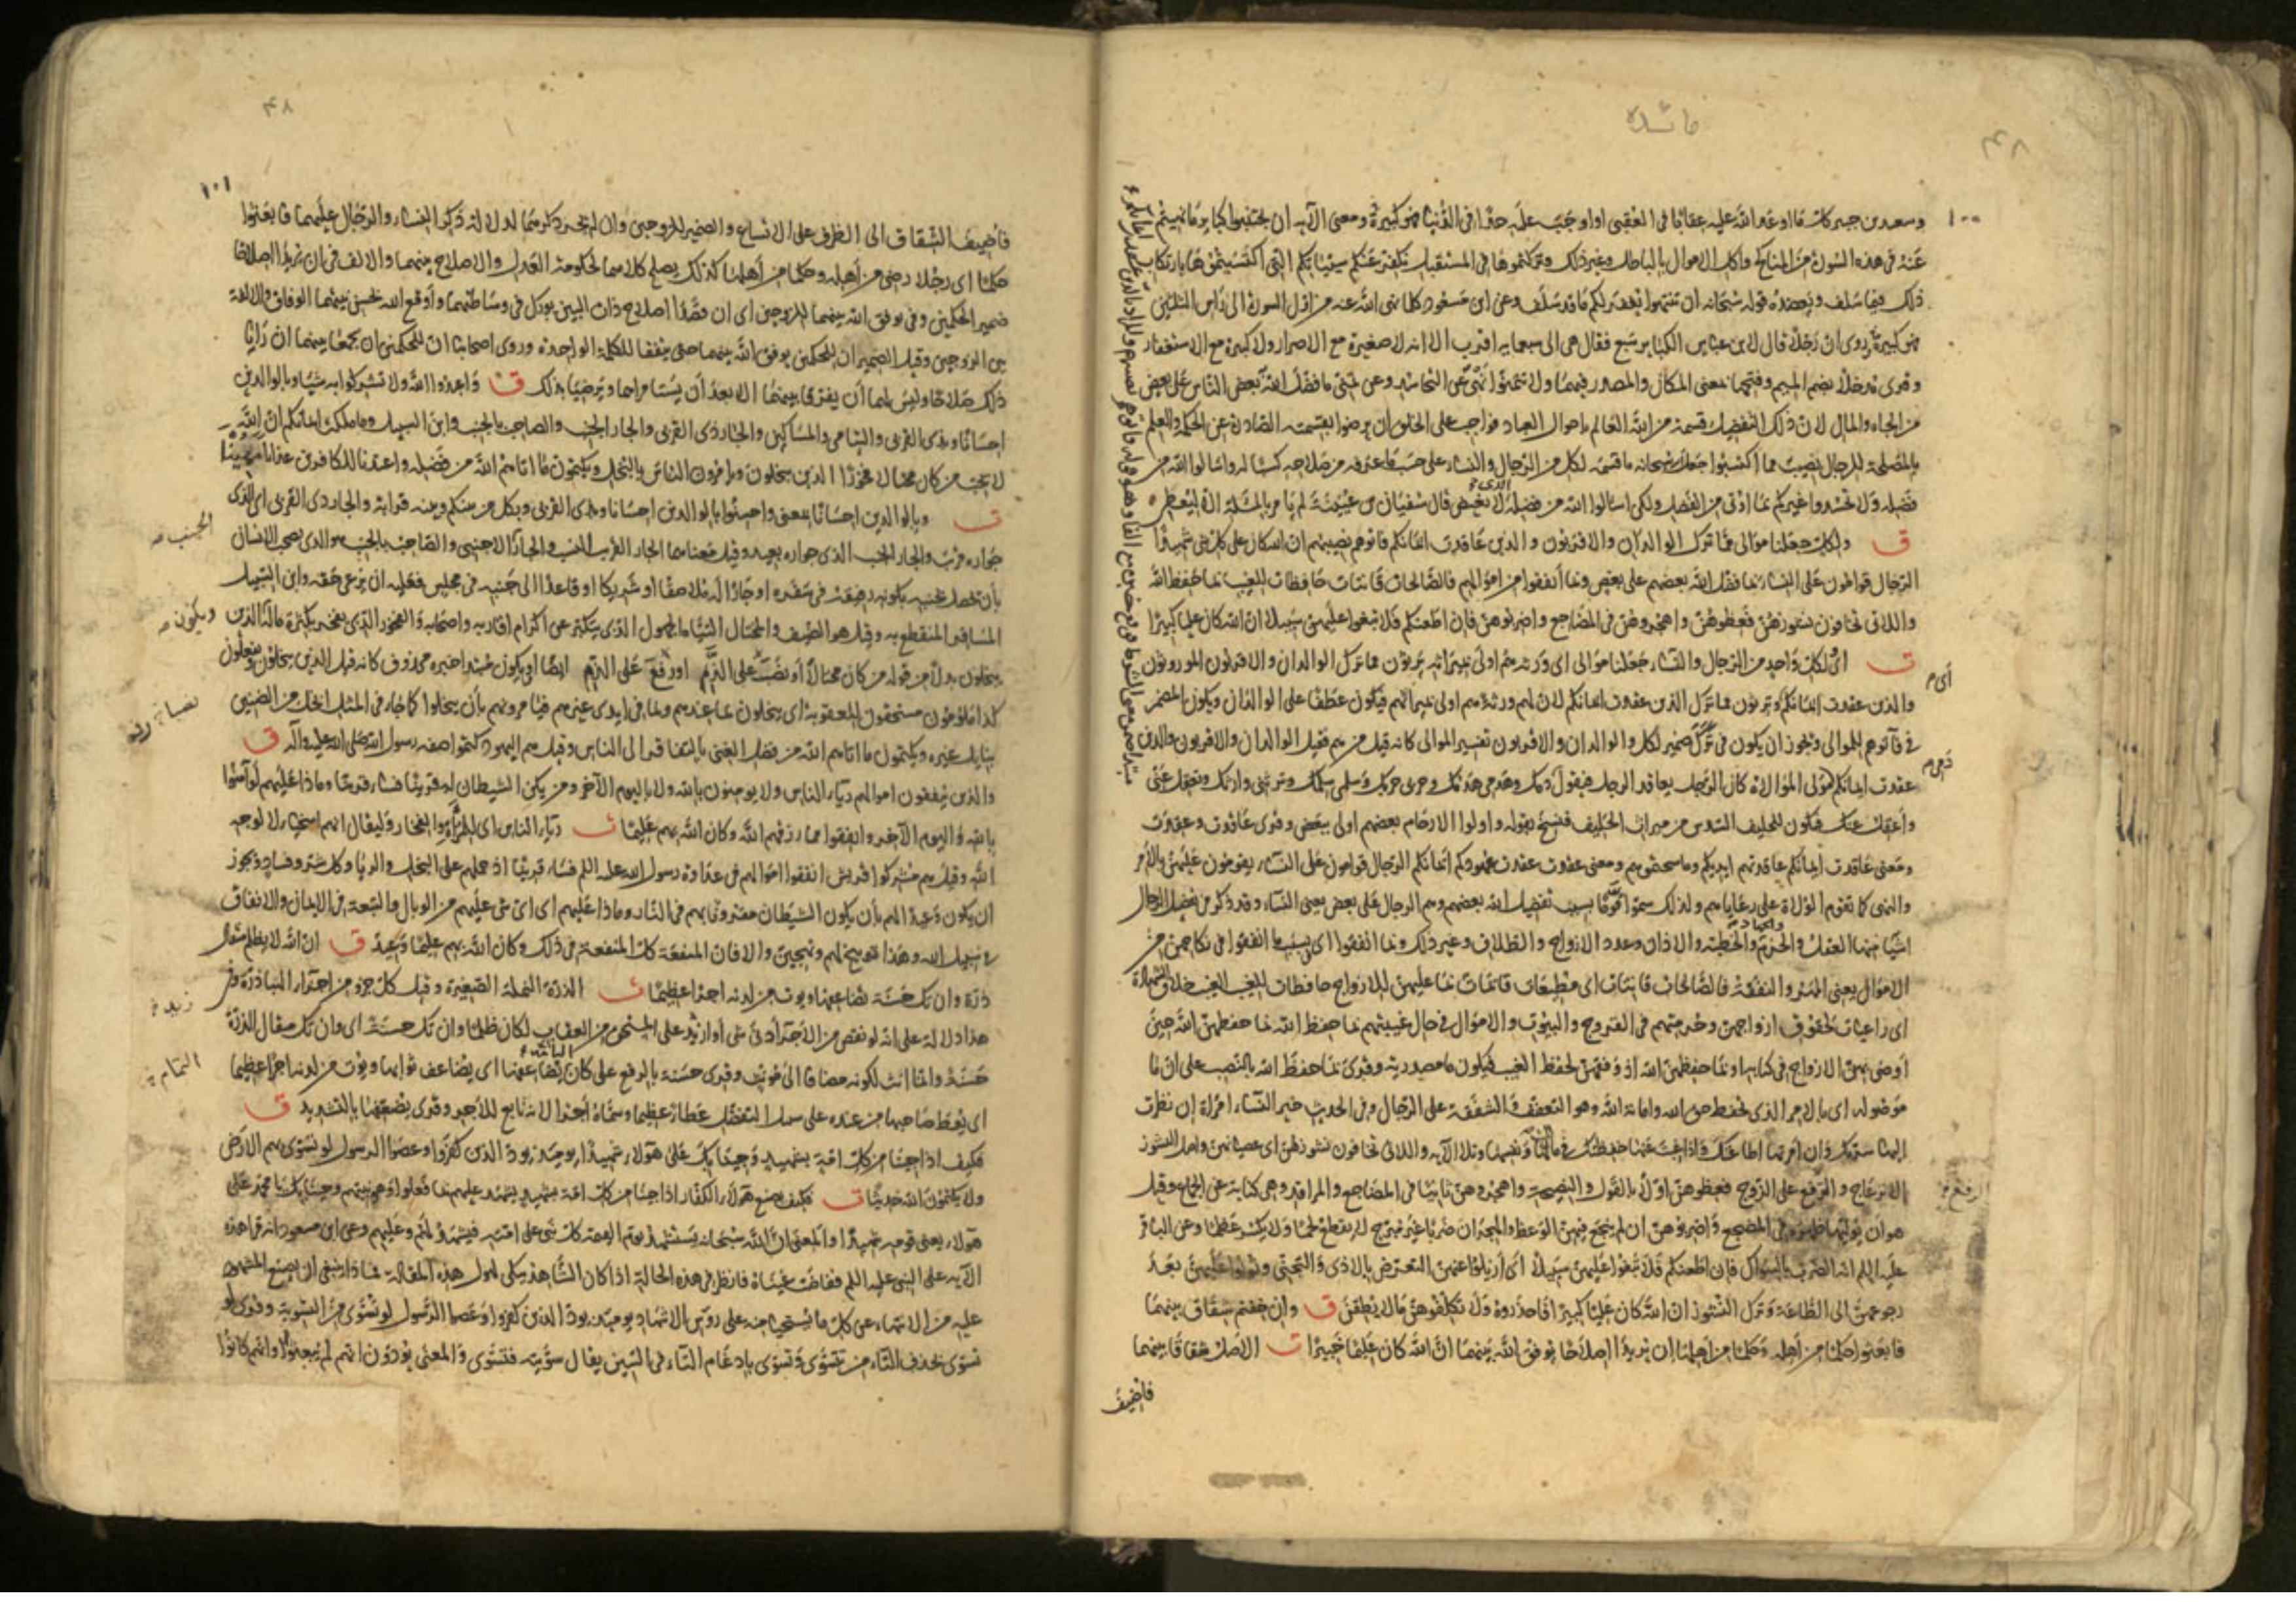 مائده
٤٨
١٠٠
وسعيد بن جبير كلّ ما اوعد الله عليه عقابا فى العقبى او اوجب عليه حدّا فى الدنيا فهو كبيرة ومعنى الآية ان تجتنبوا كباير ما نهيتم
عنه فى هذه السورة من المناكح واكل الاموال بالباطل وغير ذلك وتركتموها فى المستقبل نكفّر عنكم سيئاتكم التى اكتسبتموها بارتكاب
ذلك فيما سلف ويعضده قوله سبحانه ان ينتهوا يغفر لكم ما قد سلف وعن ابن مسعود كلما نهى الله عنه من اول السورة الى رأس الثلثين
فهو كبيرة وروى ان رجلا قال لابن عباس الكباير سبع فقال هى الى سبعمايه اقرب الا انه لا صغيرة مع الاصرار ولا كبيرة مع الاستغفار
وقرى مدخلا بضم الميم وفتحها بمعنى المكان والمصدر فيهما ولا تتمنوا نهى عن التحاسد وعن تمنى ما فضل الله بعض الناس على بعض
من الجاه والمال لان ذلك التفضيل قسمة من الله العالم باحوال العباد فواجب على الخلق ان يرضوا بقسمته الصادرة عن الحكمة والعلم
بالمصلحة للرجال نصيب مما اكتسبوا جعل سبحانه ما قسمه لكل من الرجال والنساء على حسب ما عرفه من صلاحه كسبا له واسالوا الله من
فضله ولا تحسدوا غيركم بما اوتى من الفضل ولكن اسالوا الله من فضله الذى لا يغيض قال سفيان بن عيينة لم يأمر بالمسئلة الا ليعطى
ق ولكل جعلنا موالى مما ترك الوالدان والاقربون والذين عاقدت ايمانكم فاتوهم نصيبهم ان الله كان على كل شى شهيدا
الرجال قوامون على النساء بما فضل الله بعضهم على بعض وبما أنفقوا من اموالهم فالصالحات قانتات حافظات للغيب بما حفظ الله
واللاتى تخافون نشوزهن فعظوهن واهجروهن فى المضاجع واضربوهن فان اطعنكم فلا تبغوا عليهن سبيلا ان الله كان عليا كبيرا
ت اى لكل واحد من الرجال والنساء جعلنا موالى اى ورثة هم اولى بميراثه يرثون مما ترك الوالدان والاقربون الموروثون
والذين عقدت ايمانكم ويرثون مما ترك الذين عقدت ايمانكم لان لهم ورثة هم اولى بميراثهم فيكون عطفا على الوالدان ويكون المضمر
فى فآتوهم للموالى ويجوز ان يكون فى ترك ضمير لكل والوالدان والاقربون تفسير الموالى كانه قيل من هم فقيل الوالدان والاقربون والذين
عقدت ايمانكم مولى الموالاة كان الرجل يعاقد الرجل فيقول دمى دمك وهدمى هدمك وحربى حربك وسلمى سلمك وترثنى وارثك وتعقل عنى
واعقل عنك فيكون للحليف السدس من ميراث الحليف فنسخ بقوله واولوا الارحام بعضهم اولى ببعض وقرى عاقدت وعقدت
ومعنى عاقدت ايمانكم عاقدتهم ايديكم وماسحتموهم ومعنى عقدت عقدت عهودكم ايمانكم الرجال قوامون على النساء يقومون عليهن بالأمر
والنهى كما تقوم الولاة على رعاياهم ولذلك سموا قواما بسبب تفضيل الله بعضهم وهم الرجال على بعض يعنى النساء وقد ذكر من فضل الرجال
اشياء منها العقل والحزم والجهاد والخطبة والاذان وعدد الازواج والطلاق وغير ذلك وبما انفقوا اى بسبب ما انفقوا فى نكاحهن من
الاموال يعنى المهر والنفقة فالصالحات قانتات اى مطيعات قائمات بما عليهن للازواج حافظات للغيب الغيب خلاف الشهادة
اى راعيات لحقوق ازواجهن وحرمتهم فى الفروج والبيوت والاموال فى حال غيبتهم بما حفظ الله بما حفظهن الله حين
أوصى بهن الازواج فى كتابه او بما حفظهن الله اذ وفقهن لحفظ الغيب فيكون ما مصدرية وقرى بما حفظ الله بالنصب على ان ما
موصوله اى بالامر الذى يحفظ حق الله وامانة الله وهو التعفف والشفقة على الرجال وفى الحديث خير النساء امراة إن نظرت
اليها سرتك وان امرتها اطاعتك واذا غبت عنها حفظتك فى مالها ونفسها وتلا الآية واللاتى تخافون نشوزهن اى عصيانهن واصل النشوز
الانزعاج والترفع على الزوج فعظوهن اولا بالقول والنصيحة واهجروهن ثانيا فى المضاجع والمراقد وهى كناية عن الجماع وقيل
هو ان يوليها ظهره فى المضجع واضربوهن ان لم ينجع فيهن الوعظ والهجران ضربا غير مبرح لا يقطع لحما ولا يكسر عظما وعن الباقر
عليه السلم انه الضرب بالسواك فان اطعنكم فلا تبغوا عليهن سبيلا اى أزيلوا عنهن التعرض بالاذى والتجنى وتوبوا عليهن بعد
رجوعهن الى الطاعة وترك النشوز ان الله كان عليا كبيرا فاحذروه ولا تكلفوهن ما لا يطقن ق وان خفتم شقاق بينهما
فابعثوا حكما من أهله وحكما من أهلها إن يريدا اصلاحا يوفق الله بينهما ان الله كان عليما خبيرا ت الاصل شقاقا بينهما
فأضيف
٤٨
١٠١
فأضيف الشقاق الى الظرف على الاتساع والضمير للزوجين وان لم يجر ذكرهما لدلالة ذكر النساء والرجال عليهما فابعثوا
حكما اى رجلا رضى من أهله وحكما من أهلها كذلك يصلح كلاهما لحكومة العدل والاصلاح بينهما والالف فى ان يريدا اصلاحا
ضمير الحكمين وفى يوفق الله بينهما للزوجين اى ان قصدا اصلاح ذات البين بورك فى وساطتهما وأوقع الله بحسن نيتهما الوفاق والالفة
بين الزوجين وقيل الضميران للحكمين يوفق الله بينهما حتى يتفقا للكلمة الواحدة وروى اصحابنا ان للحكمين ان يجمعا بينهما ان رايا
ذلك صلاحا وليس لهما أن يفرقا بينهما الا بعد أن يستامراهما ويرضيا بذلك ق واعبدوا الله ولا تشركوا به شيئا وبالوالدين
احسانا وبذى القربى واليتامى والمساكين والجار ذى القربى والجار الجنب والصاحب بالجنب وابن السبيل وما ملكت ايمانكم ان الله
لا يحب من كان مختالا فخورا الذين يبخلون ويأمرون الناس بالبخل ويكتمون ما اتاهم الله من فضله واعتدنا للكافرين عذابا مهينا
ت وبالوالدين احسانا بمعنى واحسنوا بالوالدين احسانا وبذى القربى وبكل من بينكم وبينه قرابة والجار ذى القربى اى الذى
جواره قرب والجار الجنب الذى جواره بعيد وقيل معناهما الجار القريب النسب والجار الاجنبى والصاحب بالجنب هو الذى يصحب الانسان
بأن يحصل بجنبه بكونه رفيقه فى سفره او جارا له ملاصقا او شريكا او قاعدا الى جنبه فى مجلس فعليه ان يرعى حقه وابن السبيل
المسافر المنقطع به وقيل هو الضيف والمختال التياه الجهول الذى يتكبر عن اكرام اقاربه واصحابه والفخور الذى يفخر بكثرة ماله الذين
يبخلون بدل من قوله من كان مختالا أو نصب على الذم او رفع على الذم ايضا او يكون مبتدا خبره محذوف كانه قيل الذين يبخلون ويفعلون
كذا ملومون مستحقون للعقوبة اى يبخلون بما عندهم وبما فى ايدى غيرهم فيأمرونهم بأن يبخلوا كما جاء فى المثل ابخل من الضنين
بنايل غيره ويكتمون ما اتاهم الله من فضل الغنى بالتفاقر الى الناس وقيل هم اليهود كتموا صفة رسول الله صلى الله عليه وآله ق
والذين ينفقون اموالهم رياء الناس ولا يومنون بالله ولا باليوم الآخر ومن يكن الشيطان له قرينا فساء قرينا وماذا عليهم لو آمنوا
بالله واليوم الآخر وانفقوا مما رزقهم الله وكان الله بهم عليما ت رياء الناس اى للمراءاة والفخار وليقال انهم اسخياء لا لوجه
الله وقيل هم مشركوا قريش انفقوا اموالهم فى عداوة رسول الله عليه السلم فساء قرينا اذ حملهم على البخل والريا وكل شر وفساد ويجوز
ان يكون وعيدا لهم بأن يكون الشيطان مقرونا بهم فى النار وماذا عليهم اى اى شى عليهم من الوبال والتبعة فى الايمان والانفاق
فى سبيل الله وهذا توبيخ لهم وتهجين والا فان المنفعة كل المنفعة فى ذلك وكان الله بهم عليما وعيد ق ان الله لا يظلم مثقال
ذرة وان تك حسنة يضاعفها ويوت من لدنه اجرا عظيما ت الذرة النملة الصغيرة وقيل كل جزو من اجزاء الهباء ذرة وفى
هذا دلالة على انه لو نقص من الأجر أدنى شى أو ازيد على المستحق من العقاب لكان ظلما وان تك حسنة اى وان تك مثقال الذرة
حسنة وانما انث لكونه مضافا الى مونث وقرى حسنة بالرفع على كان التامة يضاعفها اى يضاعف ثوابها ويوت من لدنه اجرا عظيما
اى يعط صاحبها من عنده على سبيل التفضل عطاء عظيما وسماه أجرا لانه تابع للأجر وقرى يضعفها بالتشديد ق
فكيف اذا جئنا من كل امة بشهيد وجئنا بك على هؤلاء شهيدا يومئذ يود الذين كفروا وعصوا الرسول لو تسوى بهم الارض
ولا يكتمون الله حديثا ت فكيف يصنع هؤلاء الكفار اذا جئنا من كل امة بشهيد يشهد عليهم بما فعلوا وهو نبيهم وجئنا بك يا محمد على
هولاء يعنى قومه شهيدا والمعنى ان الله سبحانه يستشهد يوم القيمة كل نبى على امته فيشهد لهم وعليهم وعن ابن مسعود انه قرا هذه
الآية على النبى عليه السلم ففاضت عيناه فانظر فى هذه الحالة اذا كان الشاهد يبكى لهول هذه المقالة فماذا ينبغى ان يصنع المشهود
عليه من الانتهاء عن كل ما يستحيا منه على رؤس الاشهاد يومئذ يود الذين كفروا وعصوا الرسول لو تسوى من التسوية وقرى لو
تسوى بحذف التاء من تتسوى وتسوى بادغام التاء فى السين يقال سويته فتسوى والمعنى يودون انهم لم يبعثوا وانهم كانوا